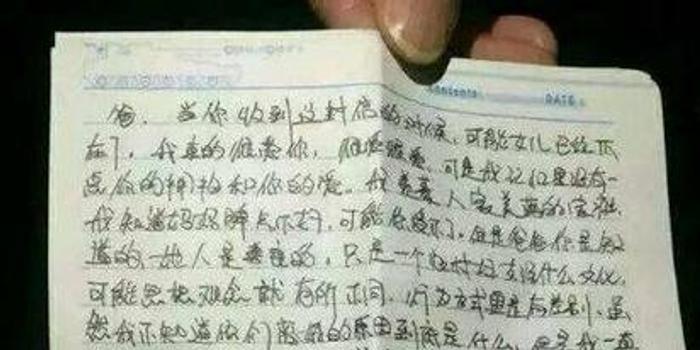 Contents DATE
爸，当你收到这封信的时候，可能女儿已经不
在了，我真的很爱你，很爱很爱，可是我这里没有一
点你的拥抱和你的爱。我羡慕人家美满的家庭，
我知道妈妈脾气不好，可能你受不了，但是爸爸你是知
道的一她人是善良的，只是一个农村妇女没什么文化，
可能思想观念就有所不同，行为方式更是有差别，虽
然我不知道你们离婚的原因到底是什么，但是我一直